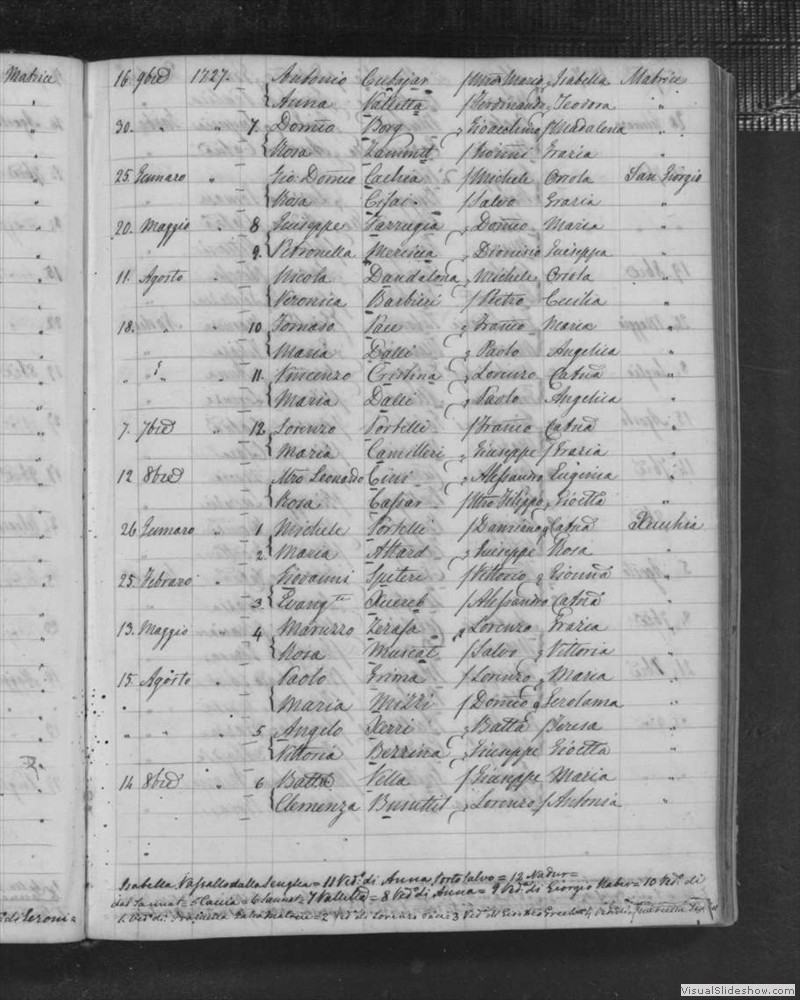 Matrice
16. 9bre 1727. Antonio Cutajar / Mro Mario, Isabella Matrice
Anna Valletta / Ferdinando, Teodora "
30. " " 7 Domco Borg, Gioacchino / Madalena "
Rosa Zammit / Grazia "
25 Gennaro " Gio: Domco Cachia / Michele Orsola San Giorgio
Rosa / Salvo Grazia "
20. Maggio " 8 Giuseppe Farrugia, Domco Maria "
9. Petronella Mercieca, Dionisio Giuseppa "
11. Agosto " Nicola Dandalona, Michele Orsola "
Veronica Barbieri / Pietro Cecilia "
18. " " 10 Tomaso Pace, Franco Maria "
Maria Dalli, Paolo Angelica "
" " " 11. Vincenzo Cristina, Lorenzo Catna "
Maria Dalli, Paolo Angelica "
7. 7bre " 12 Lorenzo Portelli / Franco Catna "
Maria Camilleri, Giuseppe / Grazia "
12 8bre Mro Leonardo Cini, Alessandro Eugenia "
Rosa Cassar / Mro Filippo, Gioetta "
26 Gennaro " 1 Michele Portelli / Damiano, Catna Xeuchia
2. Maria Attard, Giuseppe Rosa "
25. Febraro " Giovanni Spiteri / Vittorio, Gionna "
3. Evangta Xuereb / Alessandro Catna "
13. Maggio " 4 Maruzzo Zerafa, Lorenzo Grazia "
Rosa Muscat / Salvo, Vittoria "
15. Agosto " Paolo Grima / Lorenzo, Maria "
" " " Maria Mizzi / Domco, Gerolama "
" " " 5 Angelo Xerri, Batta / Teresa "
Vittoria Bezzina, Giuseppe Gioetta "
14 8bre " 6 Batta Vella / Giuseppe Maria "
Clemenza Busuttil, Lorenzo / Antonia "
Isabella Vassallo dalla Senglea = 11 Veda. di Anna Portosalvo = 12 Nadur =
dal Sannat = 5 = 6 Sannat = 7 Valletta = 8 Vedo. di Anna = 9 Veda. di Giorgio = 10 Veda. di
VisualSlideshow.com